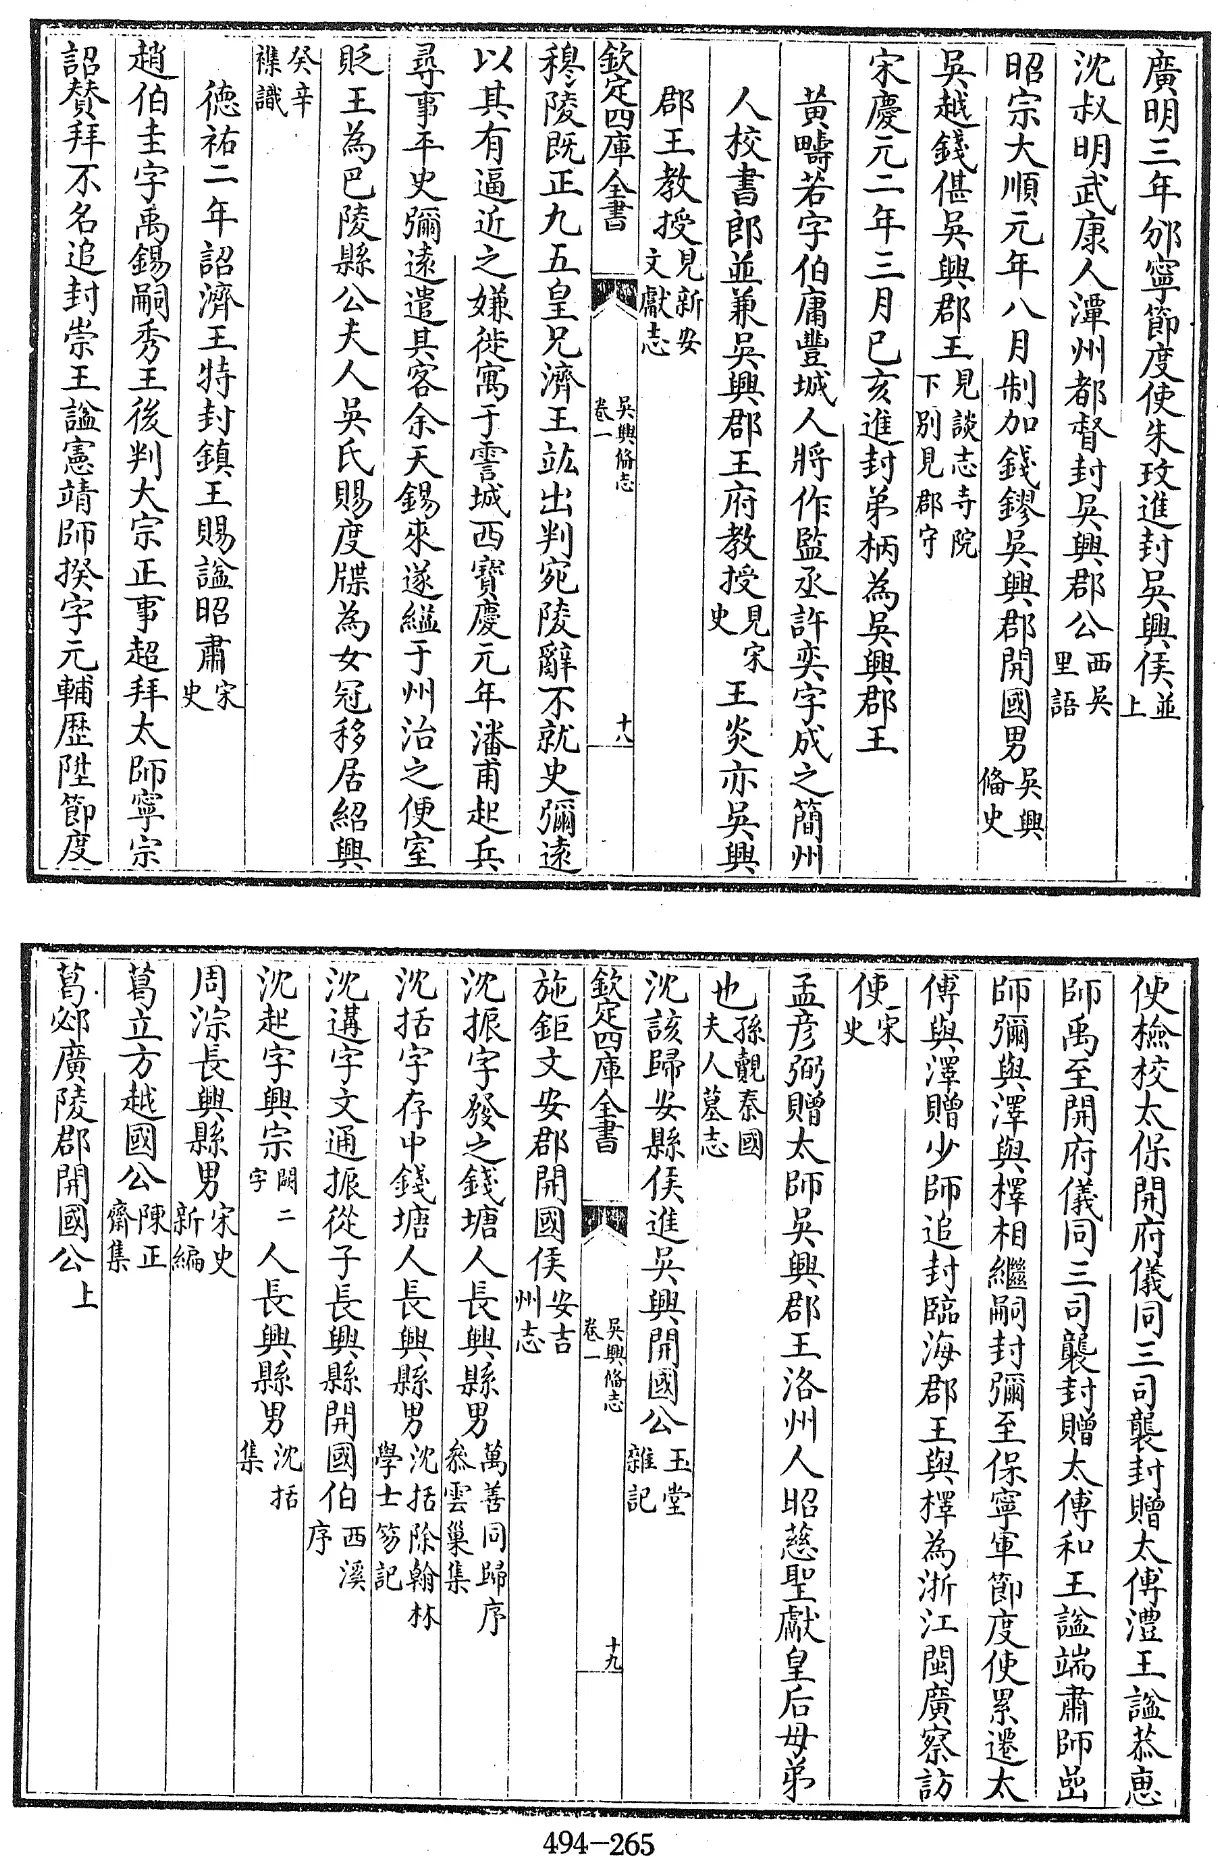 廣明三年邠寧節度使朱玫進封吳興侯並上
沈叔明武康人潭州都督封吳興郡公西吳里語
昭宗大順元年八月制加錢鏐吳興郡開國男吳興備史
吳越錢偡吳興郡王見談志寺院下別見郡守
宋慶元二年三月己亥進封弟柄為吳興郡王
黃疇若字伯庸豐城人將作監丞許奕字成之簡州
人校書郎並兼吳興郡王府教授見宋史王炎亦吳興
郡王教授見新安文獻志
欽定四庫全書 吳興備志 卷一 十八
穆陵既正九五皇兄濟王竑出判宛陵辭不就史彌遠
以其有逼近之嫌徙寓于霅城西寶慶元年潘甫起兵
尋事平史彌遠遣其客余天錫來遂縊于州治之便室
貶王為巴陵縣公夫人吳氏賜度牒為女冠移居紹興
癸辛襍識
德祐二年詔濟王特封鎮王賜謚昭肅宋史
趙伯圭字禹錫嗣秀王後判大宗正事超拜太師寧宗
詔贊拜不名追封崇王謚憲靖師揆字元輔歷陞節度
使檢校太保開府儀同三司襲封贈太傅澧王謚恭惠
師禹至開府儀同三司襲封贈太傅和王謚端肅師嵒
師彌與澤與檡相繼嗣封彌至保寧軍節度使累遷太
傅與澤贈少師追封臨海郡王與檡為浙江閩廣察訪
使宋史
孟彦弼贈太師吳興郡王洛州人昭慈聖獻皇后母弟
也孫覿秦國夫人墓志
沈該歸安縣侯進吳興開國公玉堂雜記
欽定四庫全書 吳興備志 卷一 十九
施鉅文安郡開國侯安吉州志
沈振字發之錢塘人長興縣男萬善同歸序叅雲巢集
沈括字存中錢塘人長興縣男沈括除翰林學士笏記
沈遘字文通振從子長興縣開國伯西溪序
沈起字興宗闕二字人長興縣男沈括集
周淙長興縣男宋史新編
葛立方越國公陳正齋集
葛邲廣陵郡開國公上
494-265